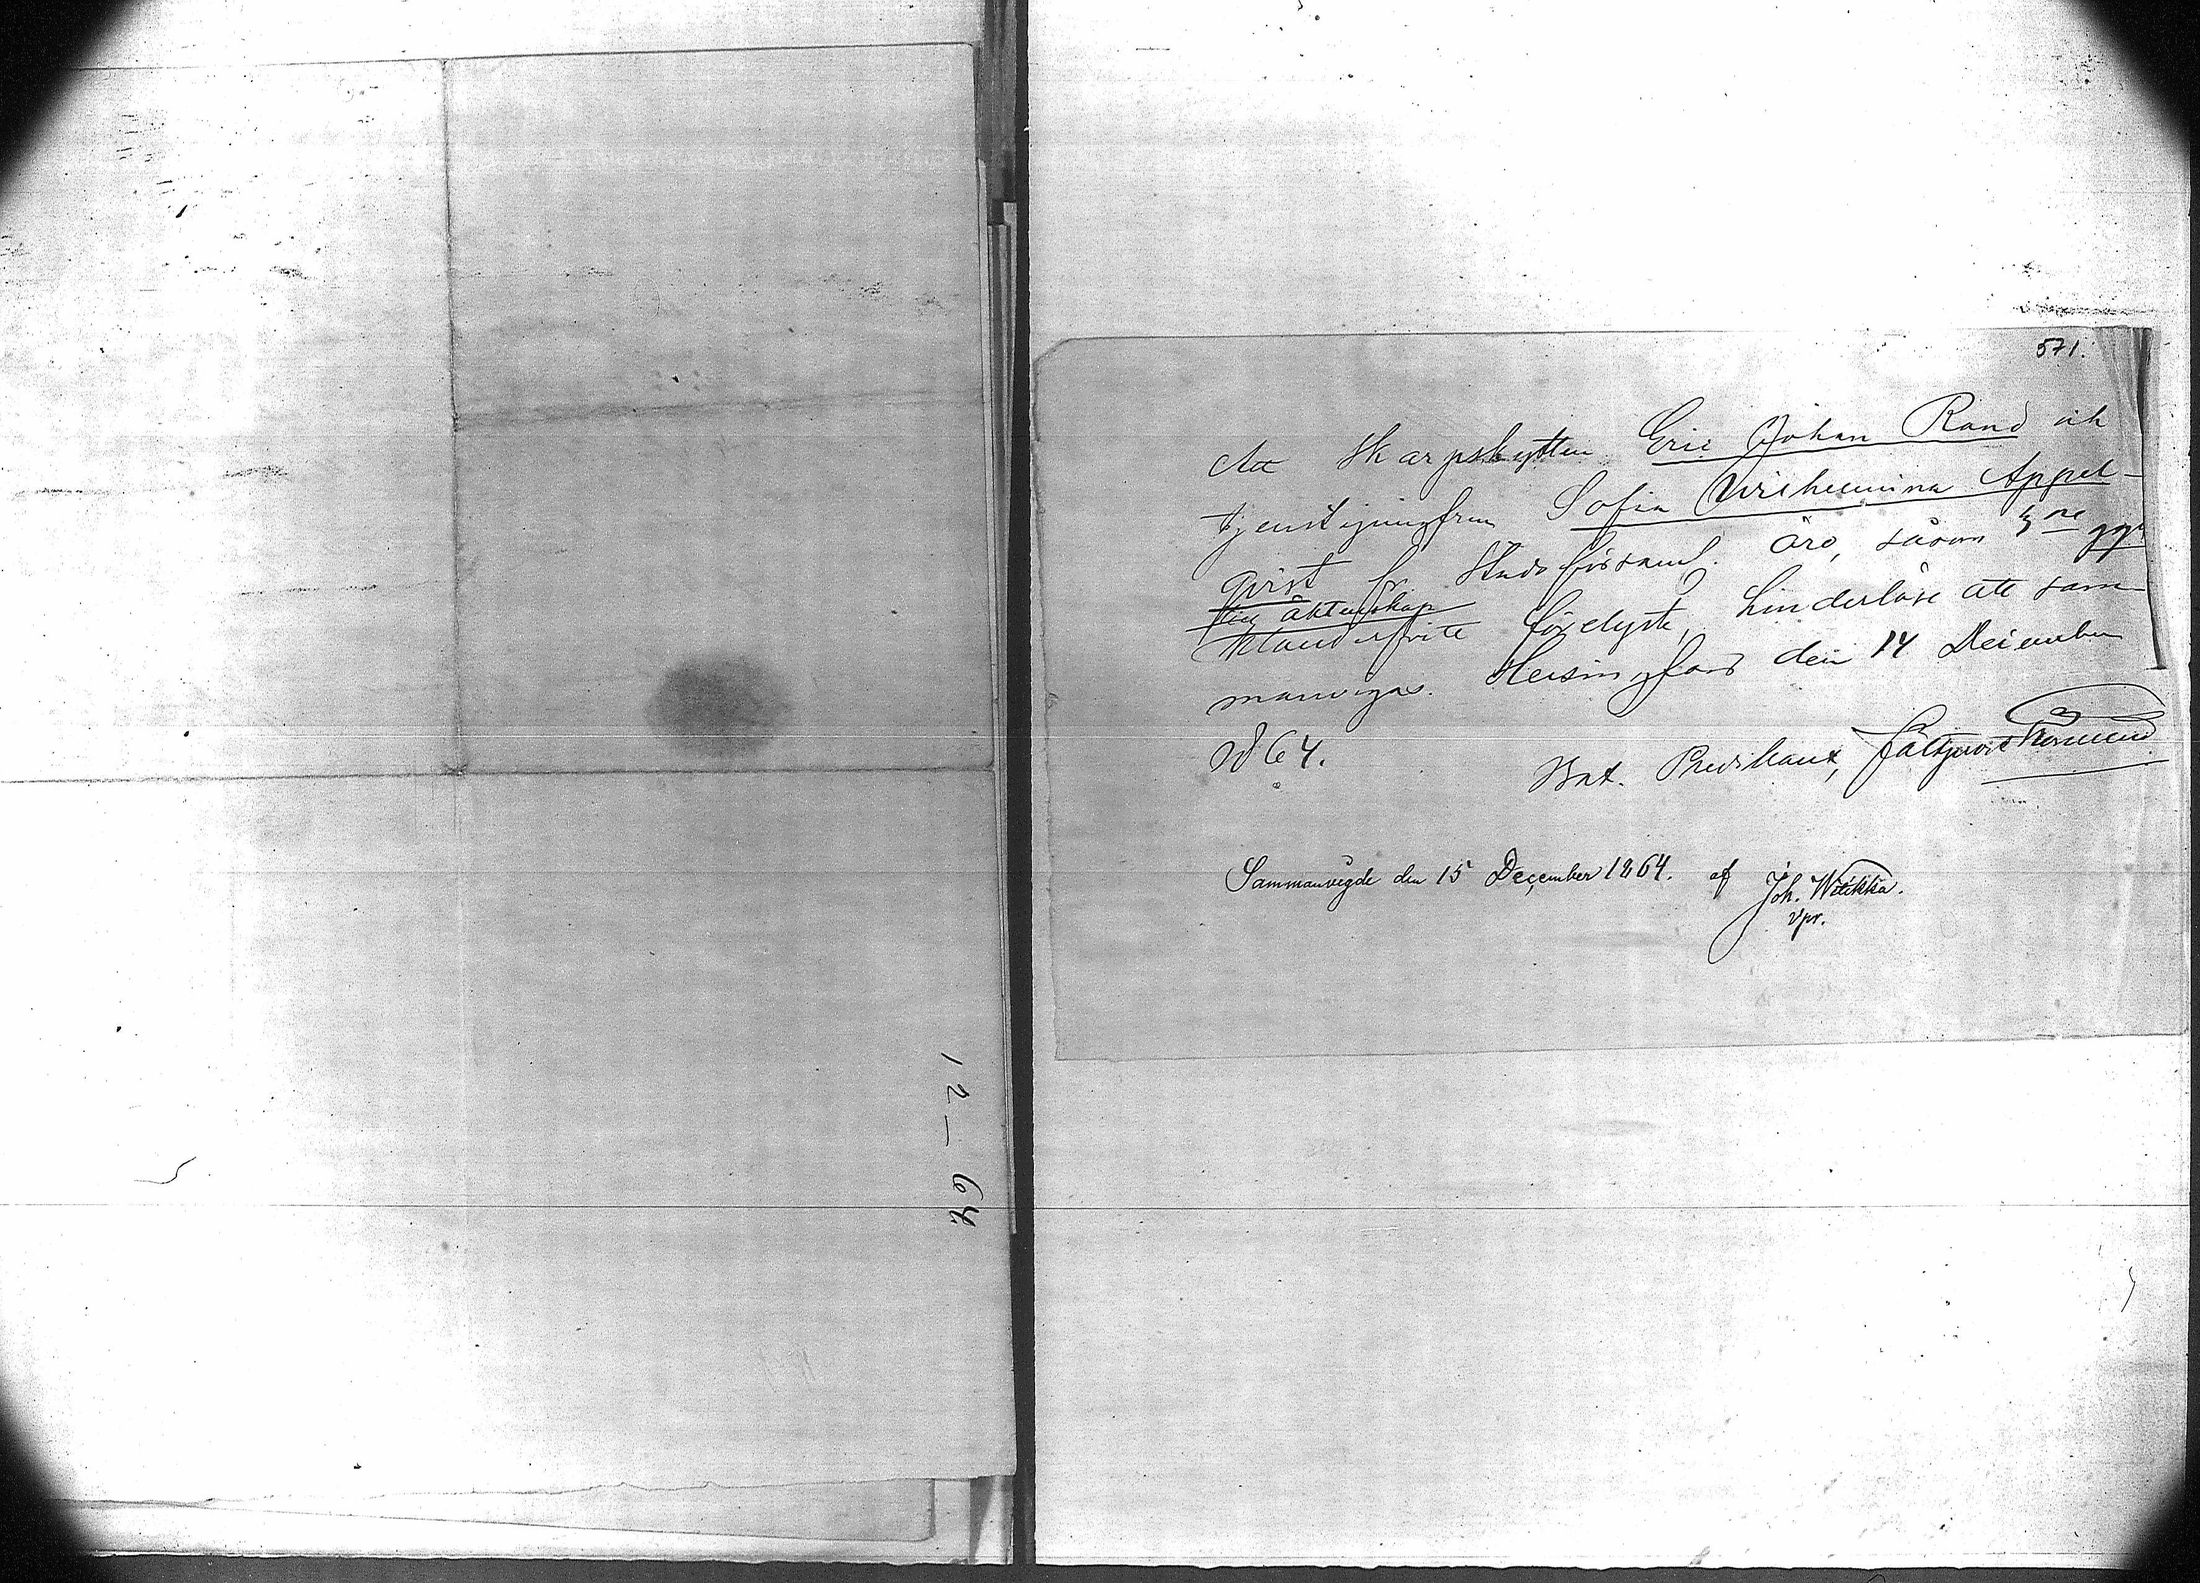 12–64.
571.
Att skarpskytten Eric Johan Rand och
tjenstejungfrun Sofia Wilhelmina Appel-
qvist fr Stadsförsaml. äro, såsom 3ne ggr
till äktenskap
klanderfritt förelyste, hinderlöse att sam-
manvigas. Helsingfors den 14 December
1864.
Bat. Predikant,
Sammanvigde den 15 December 1864. af Joh. Witikka.
vpr.